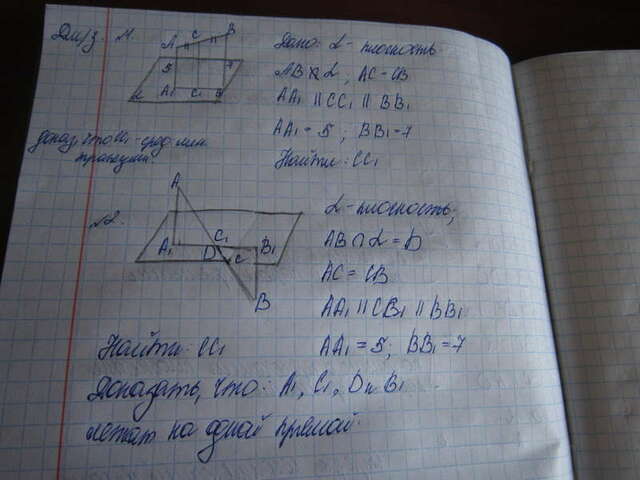 Дм/з. №1.
A C B
5 7
α A₁ C₁ B₁
Дано: α - плоскость
AB ∦ α, AC = CB
AA₁ || CC₁ || BB₁
AA₁ = 5; BB₁ = 7
Найти: CC₁
доказ, что CC₁ - сред. лин.
трапеции.
№2.
A
A₁ D C₁ C B₁
B
α - плоскость;
AB ∩ α = D
AC = CB
AA₁ || CB₁ || BB₁
AA₁ = 5; BB₁ = 7
Найти: CC₁
Доказать, что: A₁, C₁, D и B₁
лежат на одной прямой.